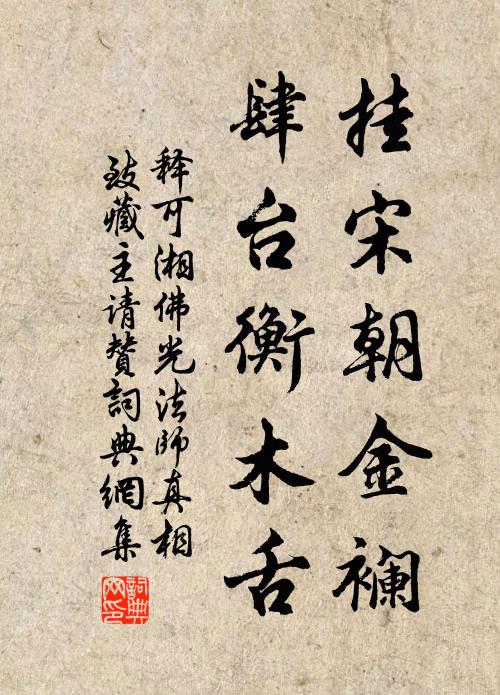 挂宋朝金襕
肆台衡木舌
释可湘佛光法师真相
致藏主请赞词典網集
詞典
网印